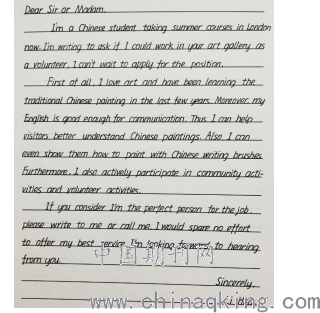 Dear Sir or Madam.
I'm a Chinese student taking summer courses in London
now. I'm writing to ask if I could work in your art gallery as
a volunteer. I can't wait to apply for the position.
First of all, I love art and have been learning the
traditional Chinese painting in the last few years. Moreover, my
English is good enough for communication. Thus, I can help
visitors better understand Chinese paintings. Also, I can
even show them how to paint with Chinese writing brushes.
Furthermore, I also actively participate in community acti-
vities and volunteer activities.
If you consider I'm the perfect person for the job,
please write to me or call me. I would spare no effort
to offer my best service. I'm looking forward to hearing
from you.
中国期刊网
Sincerely,
Li Hua
www.chinaqking.com